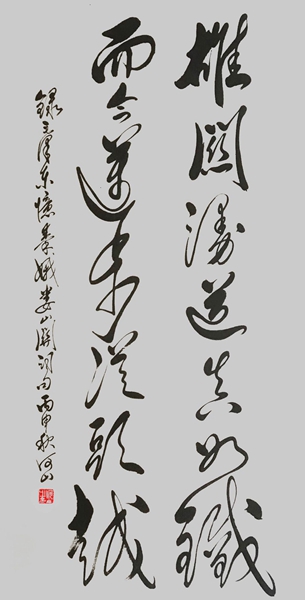 雄關漫道真如鐵
而今邁步從頭越
錄毛澤東憶秦娥婁山關詞句丙申秋河山